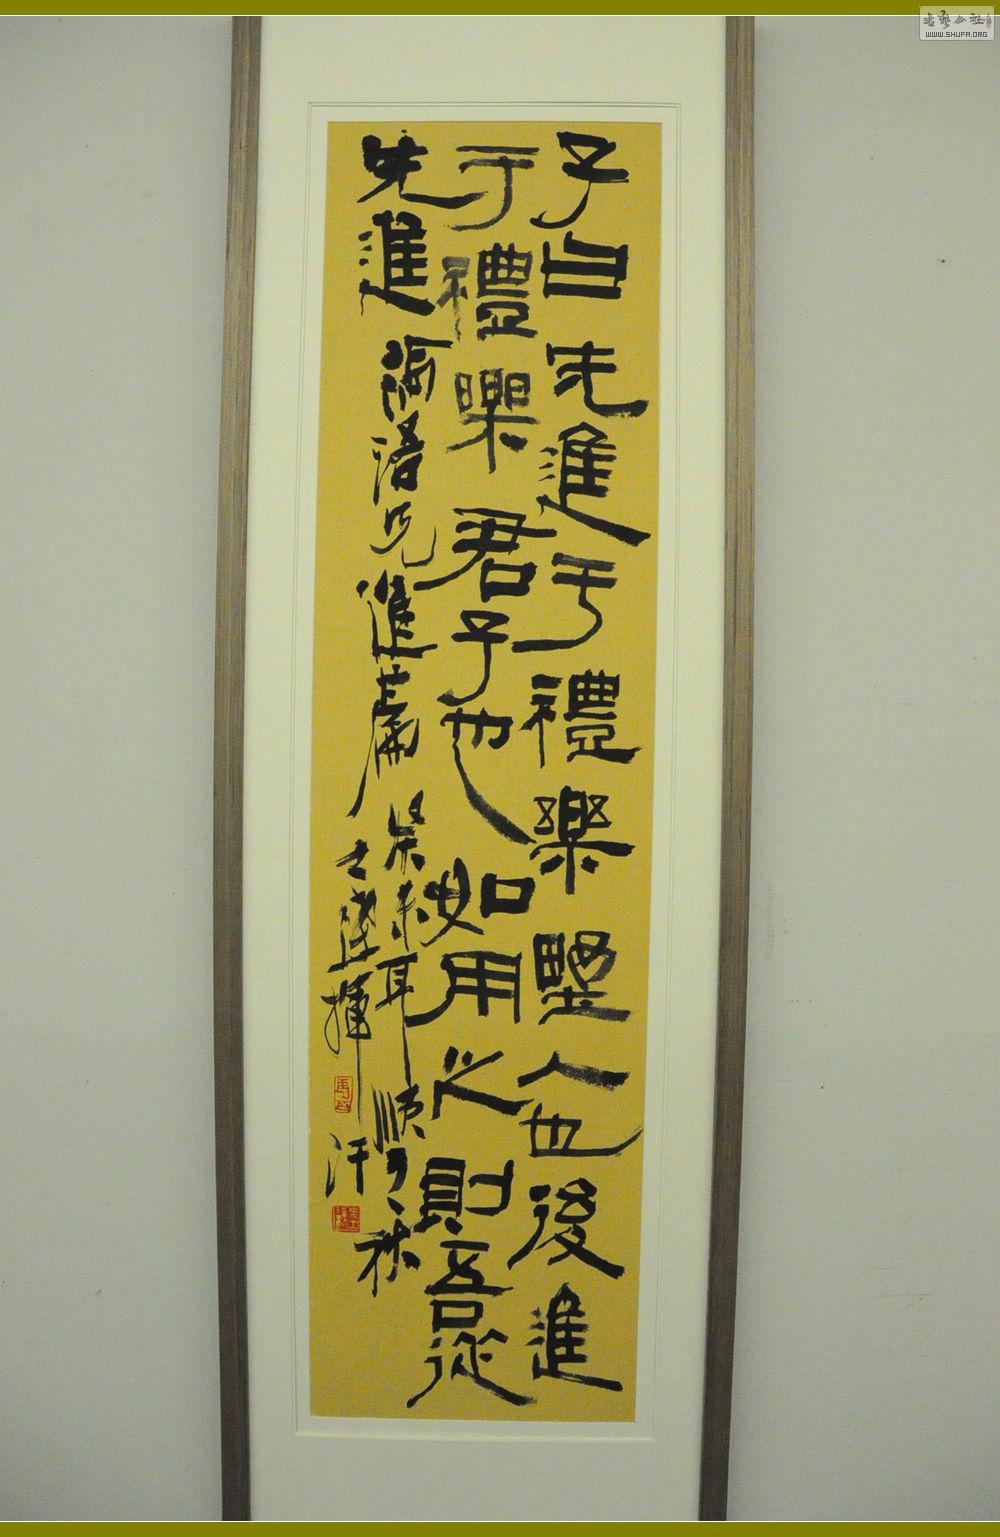 子曰先進于禮樂野人也後進
于禮樂君子也如用之則吾從
先進 論語先進篇 癸未耳順了了秋
士達揮汗
書藝公社
WWW.SHUFA.ORG